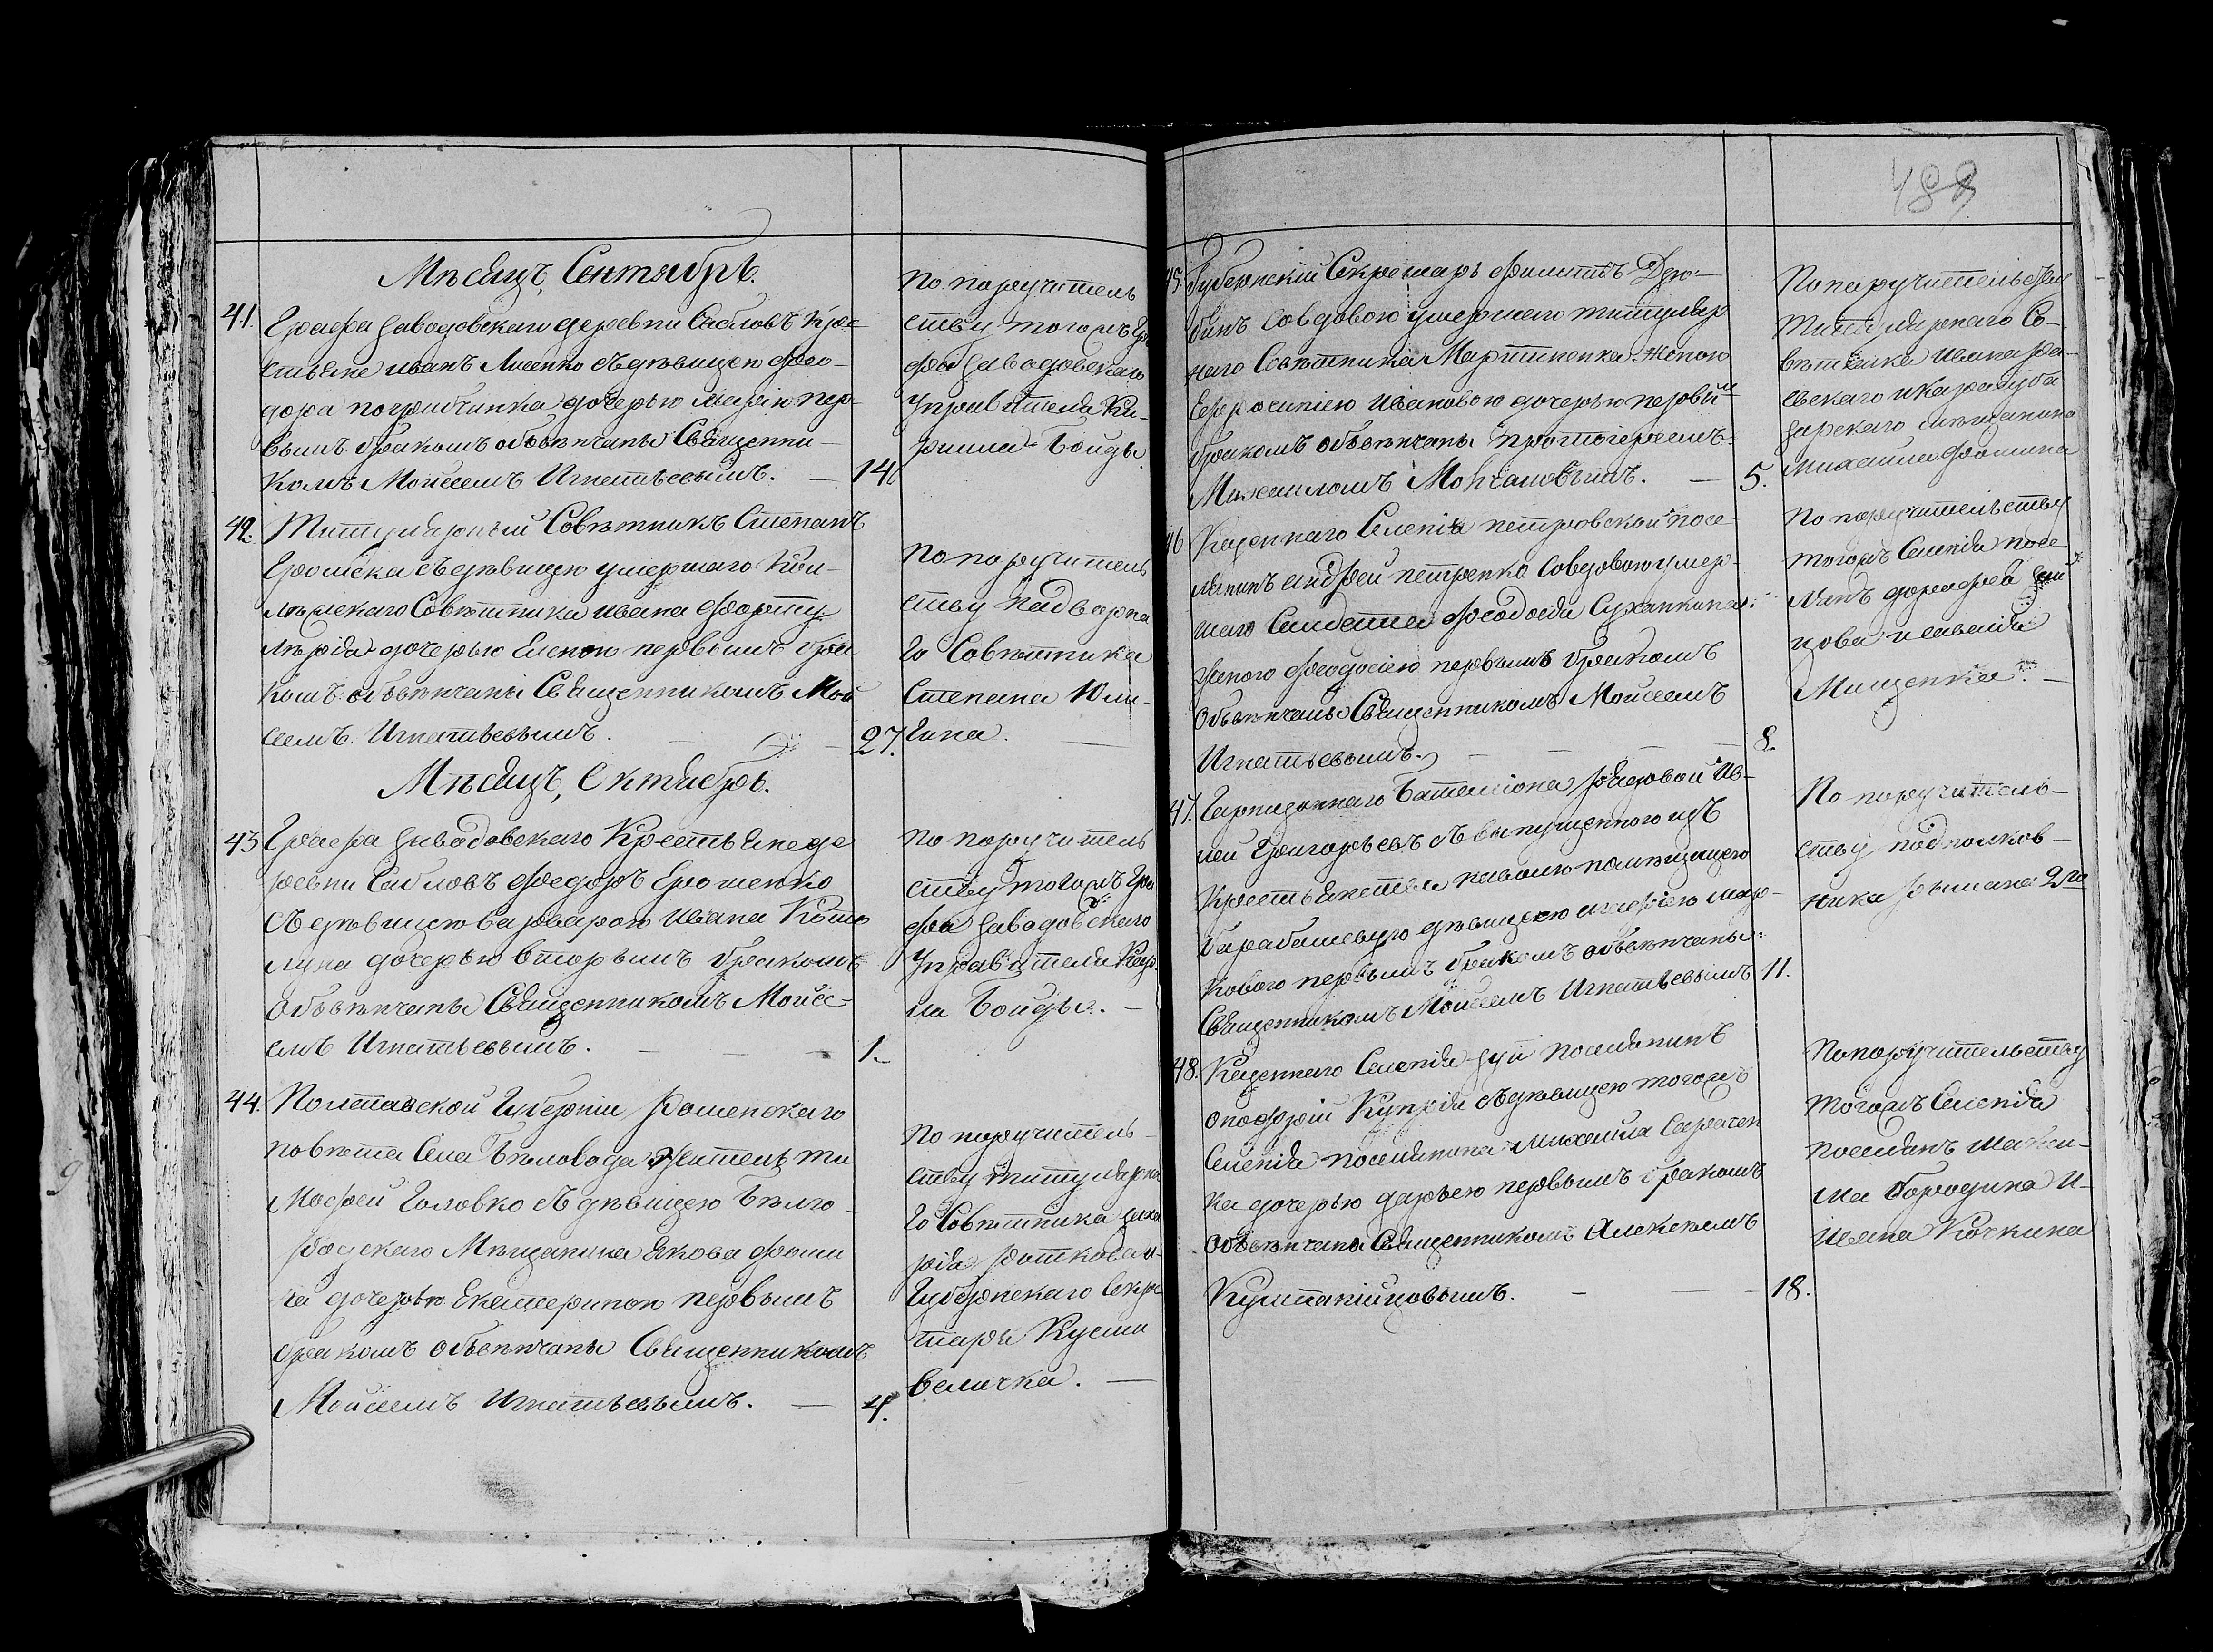 488
Мѣсяцъ, Сентябрь.
41. Графа Завадовскаго деревни Сабловъ Кре-
стьяне иванъ Лисенко съдѣвицею фео-
дора погребчинка дочерью Маріею пер-
вымъ бракомъ обвѣнчаны Священни-
комъ Мойсеемъ Игнатьевымъ. — 14.
По поручитель
ству тогожъ Гра
фа Завадовскаго
Управителя Ки-
рила Бойды.
42. Титулярный Совѣтникъ Степанъ
съдѣвицею умершаго Кол-
Совѣтника ивана
дочерью Еленою первымъ бра
комъ обвѣнчаны Священникомъ Мой
сеемъ Игнатьевымъ. — 27.
По поручитель
ству Надворна
го Совѣтника
Степана Юли-
Мѣсяцъ, Октябрь.
43 Графа Завадовскаго Крестьяне де
ревни Сабловъ Федоръ Ерошенко
съ дѣвицею Варварою Ивана
дочерью вторымъ бракомъ
Обвѣнчаны Священникомъ Мойсе-
емъ Игнатьевымъ. — 1.
По поручитель
ству тогожъ Гра
фа Завадовскаго
Управителя Кири
ла Бойды. —
44. Полтавской Губерніи Роменскаго
повѣта Села Бѣловода житель ти
мофей Головко съ дѣвицею Бѣлго-
родскаго Мѣщанина Якова Фоми
ча дочерью Екатериною первымъ
бракомъ обвѣнчаны Священникомъ
Мойсеемъ Игнатьевымъ. — 4.
По поручитель-
ству титулярна
го Совѣтника Заха
рія и
Губернскаго Секре
таря
величка. —
45. Губернскій Секретарь Филиппъ
Совдовою умершаго титуляр
наго Совѣтника Мартиненка женою
Ефросиніею Ивановою дочерью первымъ
бракомъ обвѣнчаны Протоіереемъ
Михаиломъ Молчановымъ. — 5.
По поручительству
Титулярнаго Со-
вѣтника Ивана
и карасуба
зарскаго мѣщанина
Михаила Фомина
46 Казеннаго Селенія петровской посе-
лянинъ андрей петренко Совдовою умер-
шаго Солдата Феодосія
женою Феодосіею первымъ бракомъ
Обвѣнчаны Священникомъ Мойсеемъ
Игнатьевымъ. — 8.
По поручительству
тогожъ Селенія посе
лянъ дорофея
нова и савелія
Мищенка. —
47. Гарнизоннаго Баталіона рядовой Ив-
лей Григорьевъ съ выпущенною изъ
Крестьянства наволю помѣщицею
дѣвицею Мар-
ковою первымъ бракомъ обвѣнчаны
Священникомъ Мойсеемъ Игнатьевымъ 11.
По поручитель-
ству подполков-
ника 2го
48. Казеннаго Селенія Зуи поселянинъ
онофрій Купрія съдѣвицею тогожъ
Селенія поселянина Михаила
ка дочерью дарьею первымъ бракомъ
обвѣнчаны Священникомъ Алексѣемъ
18.
По поручительству
тогожъ Селенія
поселянъ
ма бородина и
ивана Кочкина